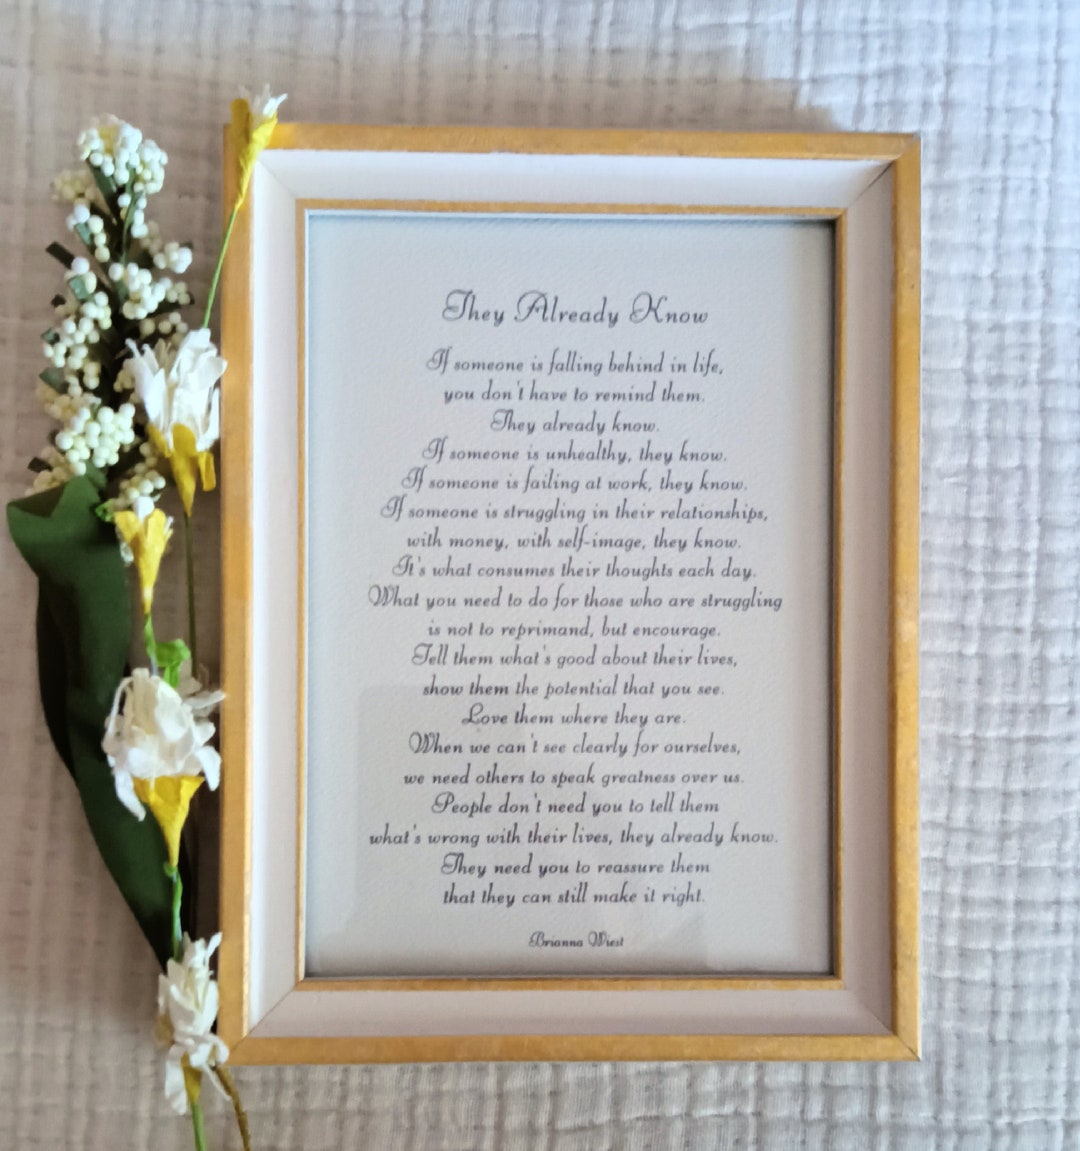 They Already Know
If someone is falling behind in life,
you don't have to remind them.
They already know.
If someone is unhealthy, they know.
If someone is failing at work, they know.
If someone is struggling in their relationships,
with money, with self-image, they know.
It's what consumes their thoughts each day.
What you need to do for those who are struggling
is not to reprimand, but encourage.
Tell them what's good about their lives,
show them the potential that you see.
Love them where they are.
When we can't see clearly for ourselves,
we need others to speak greatness over us.
People don't need you to tell them
what's wrong with their lives, they already know.
They need you to reassure them
that they can still make it right.
Brianna Wiest